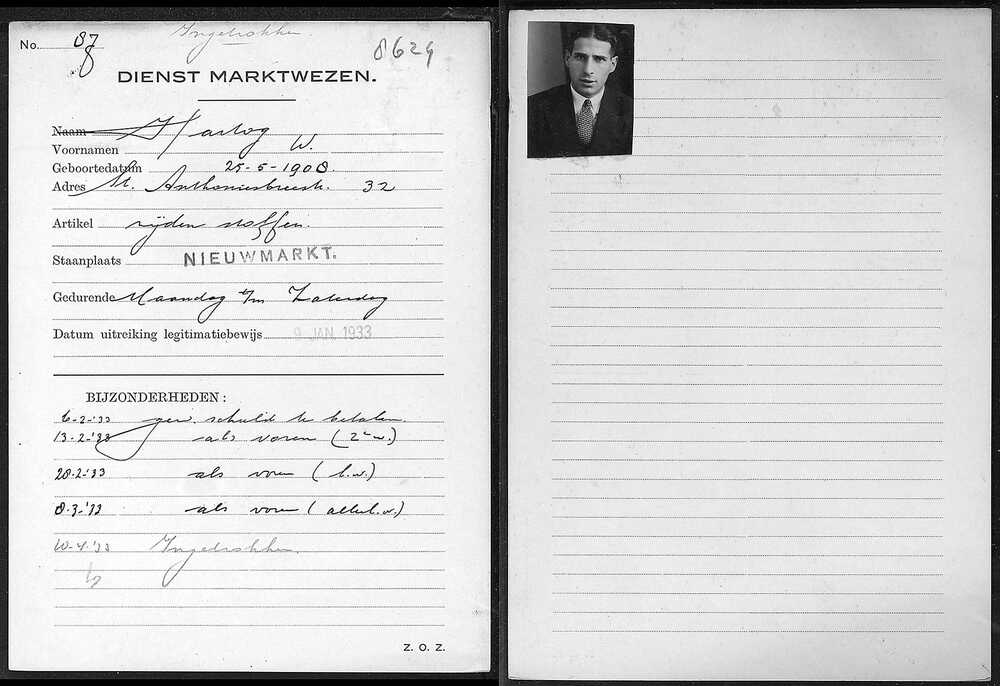 Ingetrokken.
No. 87
8
8624
DIENST MARKTWEZEN.
Naam Hartog
Voornamen W.
Geboortedatum 25-5-1908.
Adres St. Anthoniesbreestr. 32
Artikel zijden stoffen.
Staanplaats NIEUWMARKT.
Gedurende Maandag t/m Zaterdag
Datum uitreiking legitimatiebewijs 9 JAN. 1933
BIJZONDERHEDEN:
6-2-'33 gew. schuld te betalen.
13-2-'33 als voren (2e w.)
20-2-'33 als voren (l.w.)
8-3-'33 als voren (allerl.w.)
10-4-'33 Ingetrokken.
Z. O. Z.